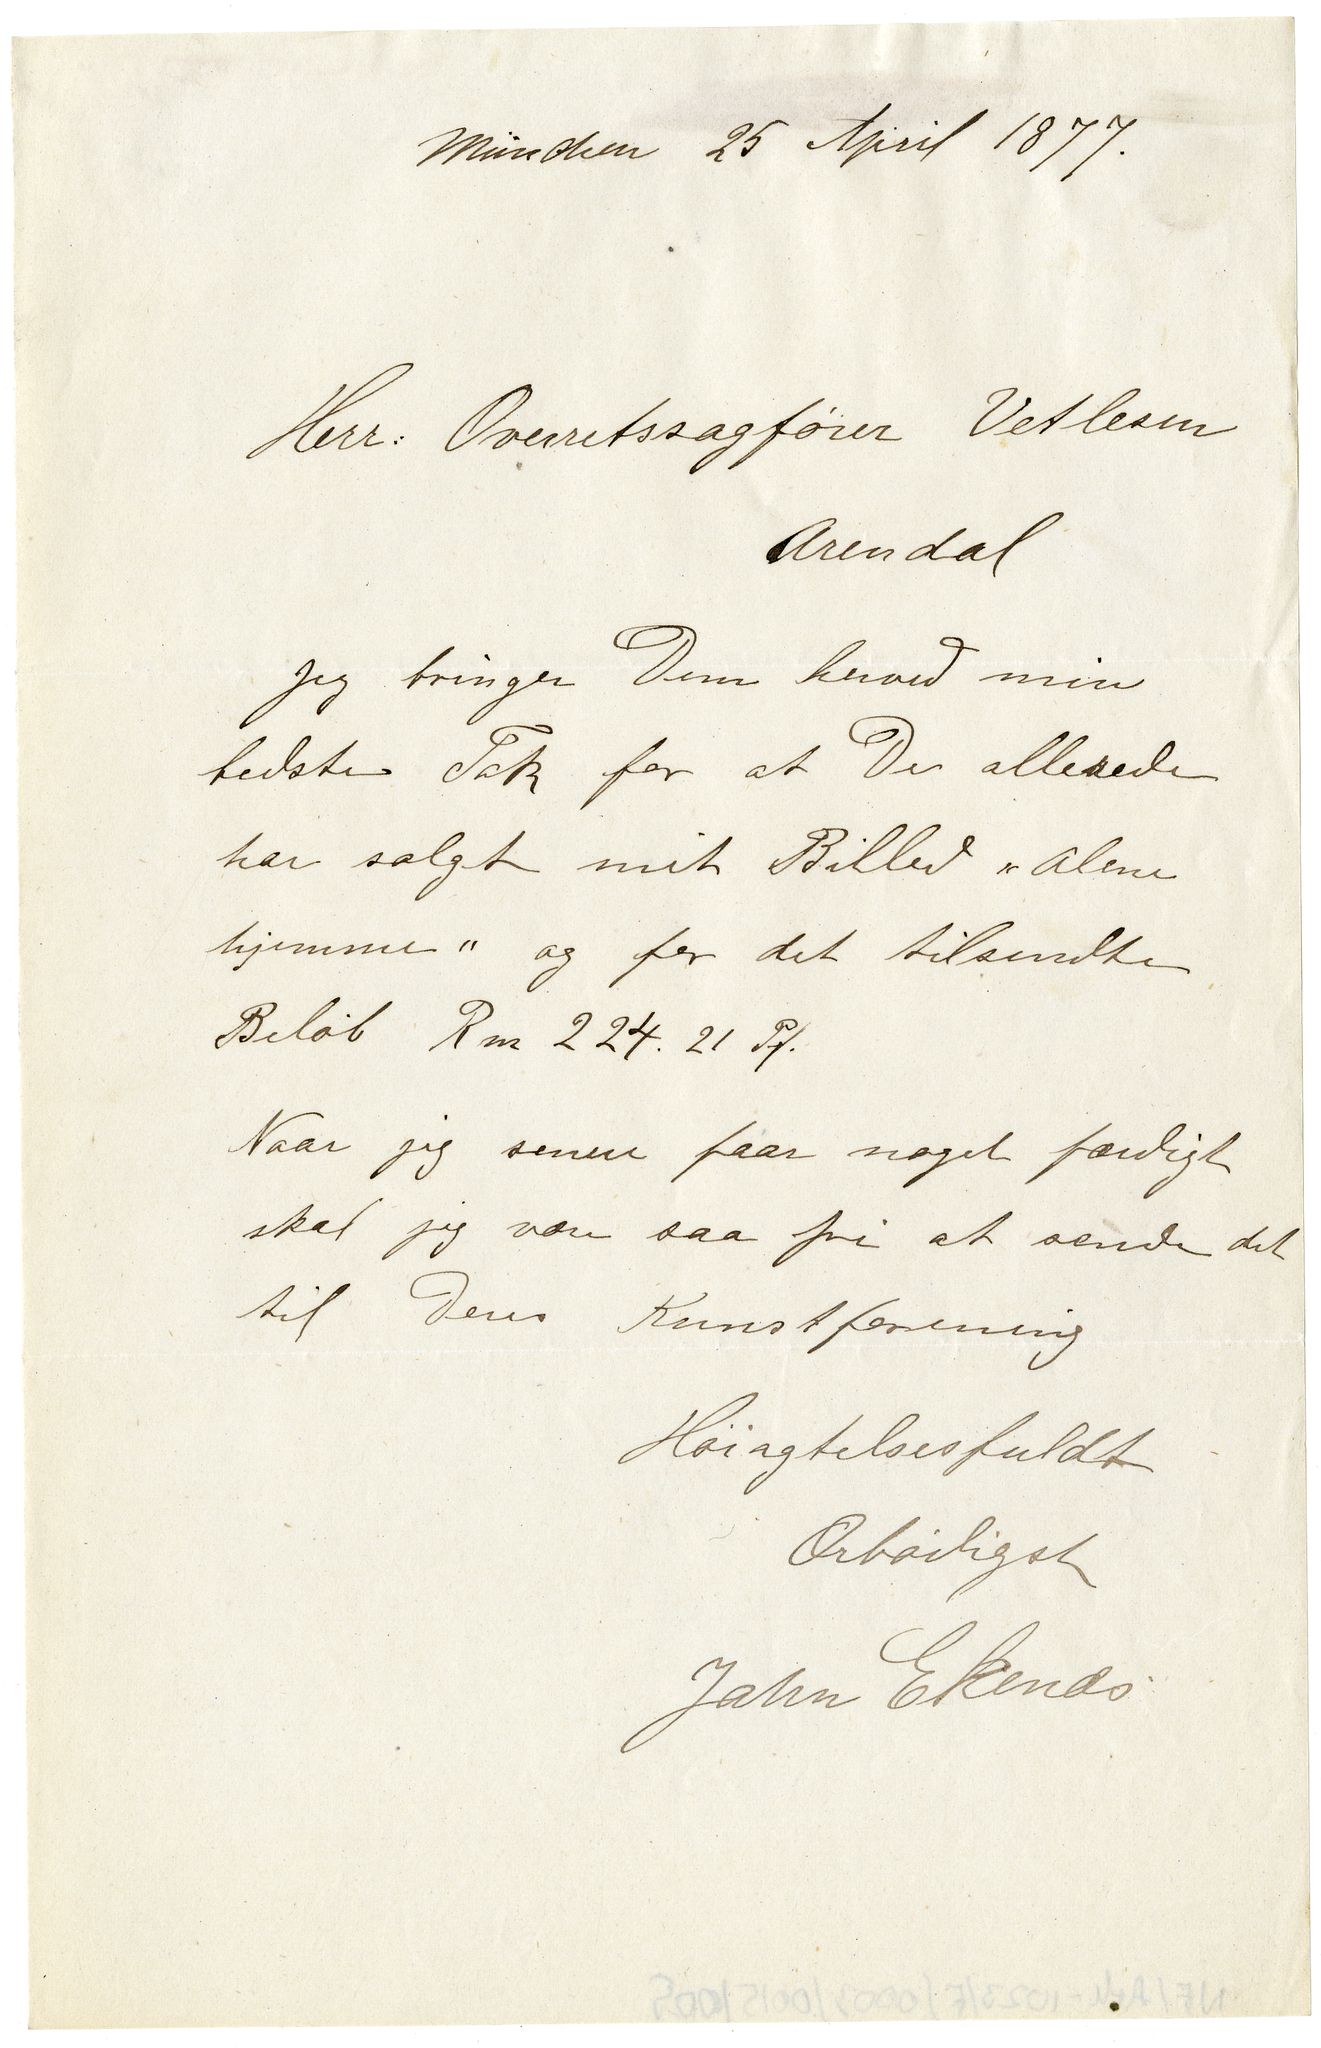 München 25 April 1877.
Herr: Overretssagfører Vetlesen
Arendal
Jeg bringer Dem herved min
bedste Tak for at De allerede
har solgt mit Billed „Alene
hjemme" og for det tilsendte
Beløb Rm 224. 21 Pf.
Naar jeg senere faar noget færdigt
skal jeg være saa fri at sende det
til Deres Kunstforening
Høiagtelsesfuldt
Ørbødigst
Jahn Ekenæs